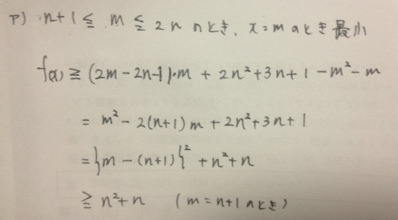 ア) n+1 ≦ m ≦ 2n のとき、x=m のとき最小
f(x) ≧ (2m-2n-1)・m + 2n²+3n+1 -m²-m
= m² -2(n+1)m + 2n²+3n+1
= {m-(n+1)}² + n²+n
≧ n²+n (m=n+1のとき)